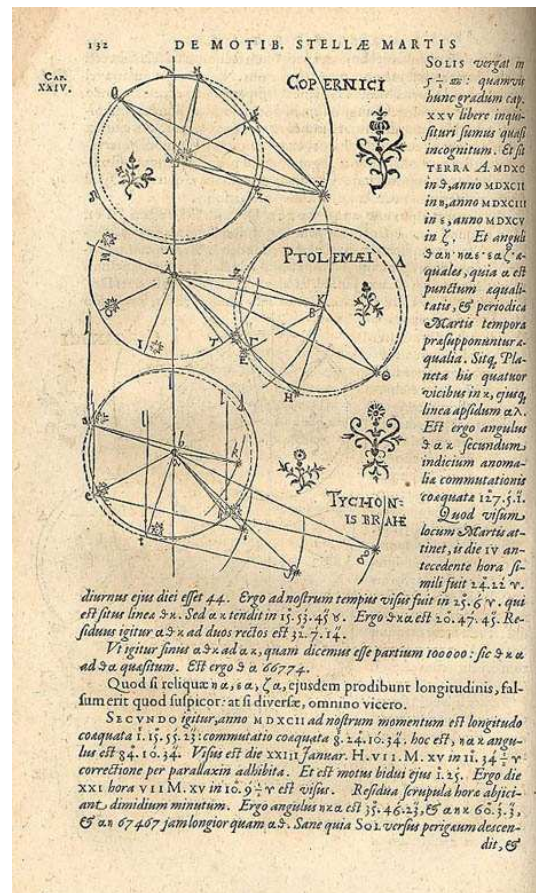 132 DE MOTIB. STELLÆ MARTIS
CAP.
XXIV.
COPERNICI
PTOLEMÆI
TYCHON=
IS BRAHE
SOLIS vergat in
5 ½ ♒: quamvis
hunc gradum cap.
XXV libere inqui-
situri sumus quasi
incognitum. Et sit
TERRA A. MDXC
in ϑ, anno MDXCII
in η, anno MDXCIII
in ε, anno MDXCV
in ζ. Et anguli
ϑαη. ηαε. εαζ æ-
quales, quia α est
punctum æquali-
tatis, & periodica
Martis tempora
præsupponuntur æ-
qualia. Sitq, Pla-
neta his quatuor
vicibus in κ, ejusq,
linea apsidum αλ.
Est ergo angulus
ϑακ secundum
indicium anoma-
liæ commutationis
coæquatæ 127.5.1.
Quod visum
locum Martis at-
tinet, is die IV an-
tecedente hora si-
mili fuit 24.22 ♈.
diurnus ejus diei esset 44. Ergo ad nostrum tempus visus fuit in 25.6 ♈. qui
est situs lineæ ϑκ. Sed ακ tendit in 15.53.45 ♉. Ergo ϑκα est 20.47.45. Re-
siduus igitur αϑκ ad duos rectos est 32.7.14.
Ut igitur sinus αϑκ ad ακ, quam dicemus esse partium 100000: sic ϑκα
ad ϑα quæsitum. Est ergo ϑα 66774.
Quod si reliquæ ηα, εα, ζα, ejusdem prodibunt longitudinis, fal-
sum erit quod suspicor: at si diversæ, omnino vicero.
SECUNDO igitur, anno MDXCII ad nostrum momentum est longitudo
coæquata 1.15.55.23: commutatio coæquata 8.24.10.34. hoc est, ηακ angu-
lus est 84.10.34. Visus est die XXIII Januar. H. VII. M. XV in 11.34 ½ ♈
correctione per parallaxin adhibita. Et est motus bidui ejus 1.25. Ergo die
XXI hora VII M. XV in 10.9 ½ ♈ est visus. Residua scrupula horæ abjici-
ant dimidium minutum. Ergo angulus ηκα est 35.46.23, & αηκ 60.3.3,
& αη 67467 jam longior quam αϑ. Sane quia SOL versus perigæum descen-
dit, &